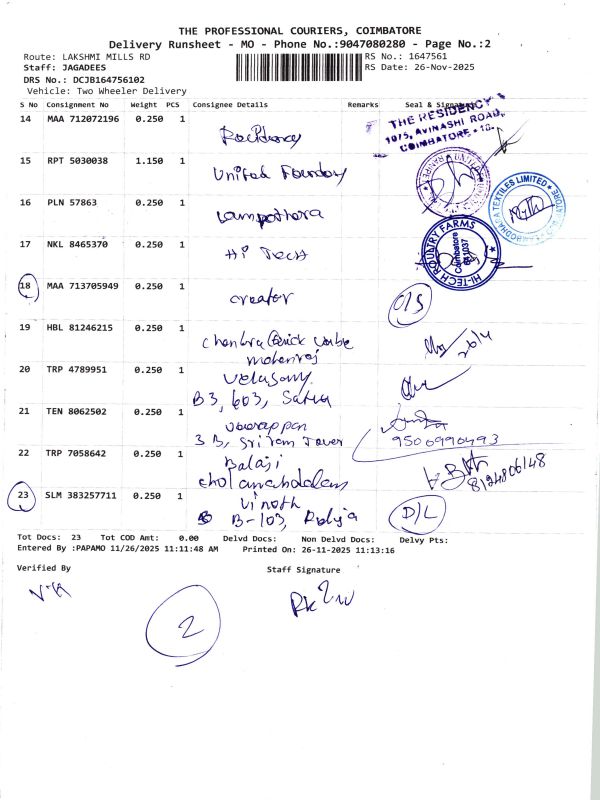 THE PROFESSIONAL COURIERS, COIMBATORE
Delivery Runsheet - MO - Phone No.:9047080280 - Page No.:2
Route: LAKSHMI MILLS RD
RS No.: 1647561
Staff: JAGADEES
RS Date: 26-Nov-2025
DRS No.: DCJB164756102
Vehicle: Two Wheeler Delivery
S No Consignment No Weight PCS Consignee Details Remarks Seal & Signature
14 MAA 712072196 0.250 1 Residency
THE RESIDENCY
1075, AVINASHI ROAD,
COIMBATORE - 18.
15 RPT 5030038 1.150 1 United Foundry
16 PLN 57863 0.250 1
TEXTILES LIMITED
17 NKL 8465370 0.250 1 Hi Tech
HI-TECH POULTRY FARMS
Coimbatore
641037
18 MAA 713705949 0.250 1 creator O/S
19 HBL 81246215 0.250 1 chandra
mohanraj
20 TRP 4789951 0.250 1 velusamy
B3, 603,
21 TEN 8062502 0.250 1
3 B, Sri ram Tower
9500990493
22 TRP 7058642 0.250 1 Balaji
cholamandalam
8124806148
23 SLM 383257711 0.250 1 Vinoth
B-103,
D/L
Tot Docs: 23 Tot COD Amt: 0.00 Delvd Docs: Non Delvd Docs: Delvy Pts:
Entered By :PAPAMO 11/26/2025 11:11:48 AM Printed On: 26-11-2025 11:13:16
Verified By
Staff Signature
2